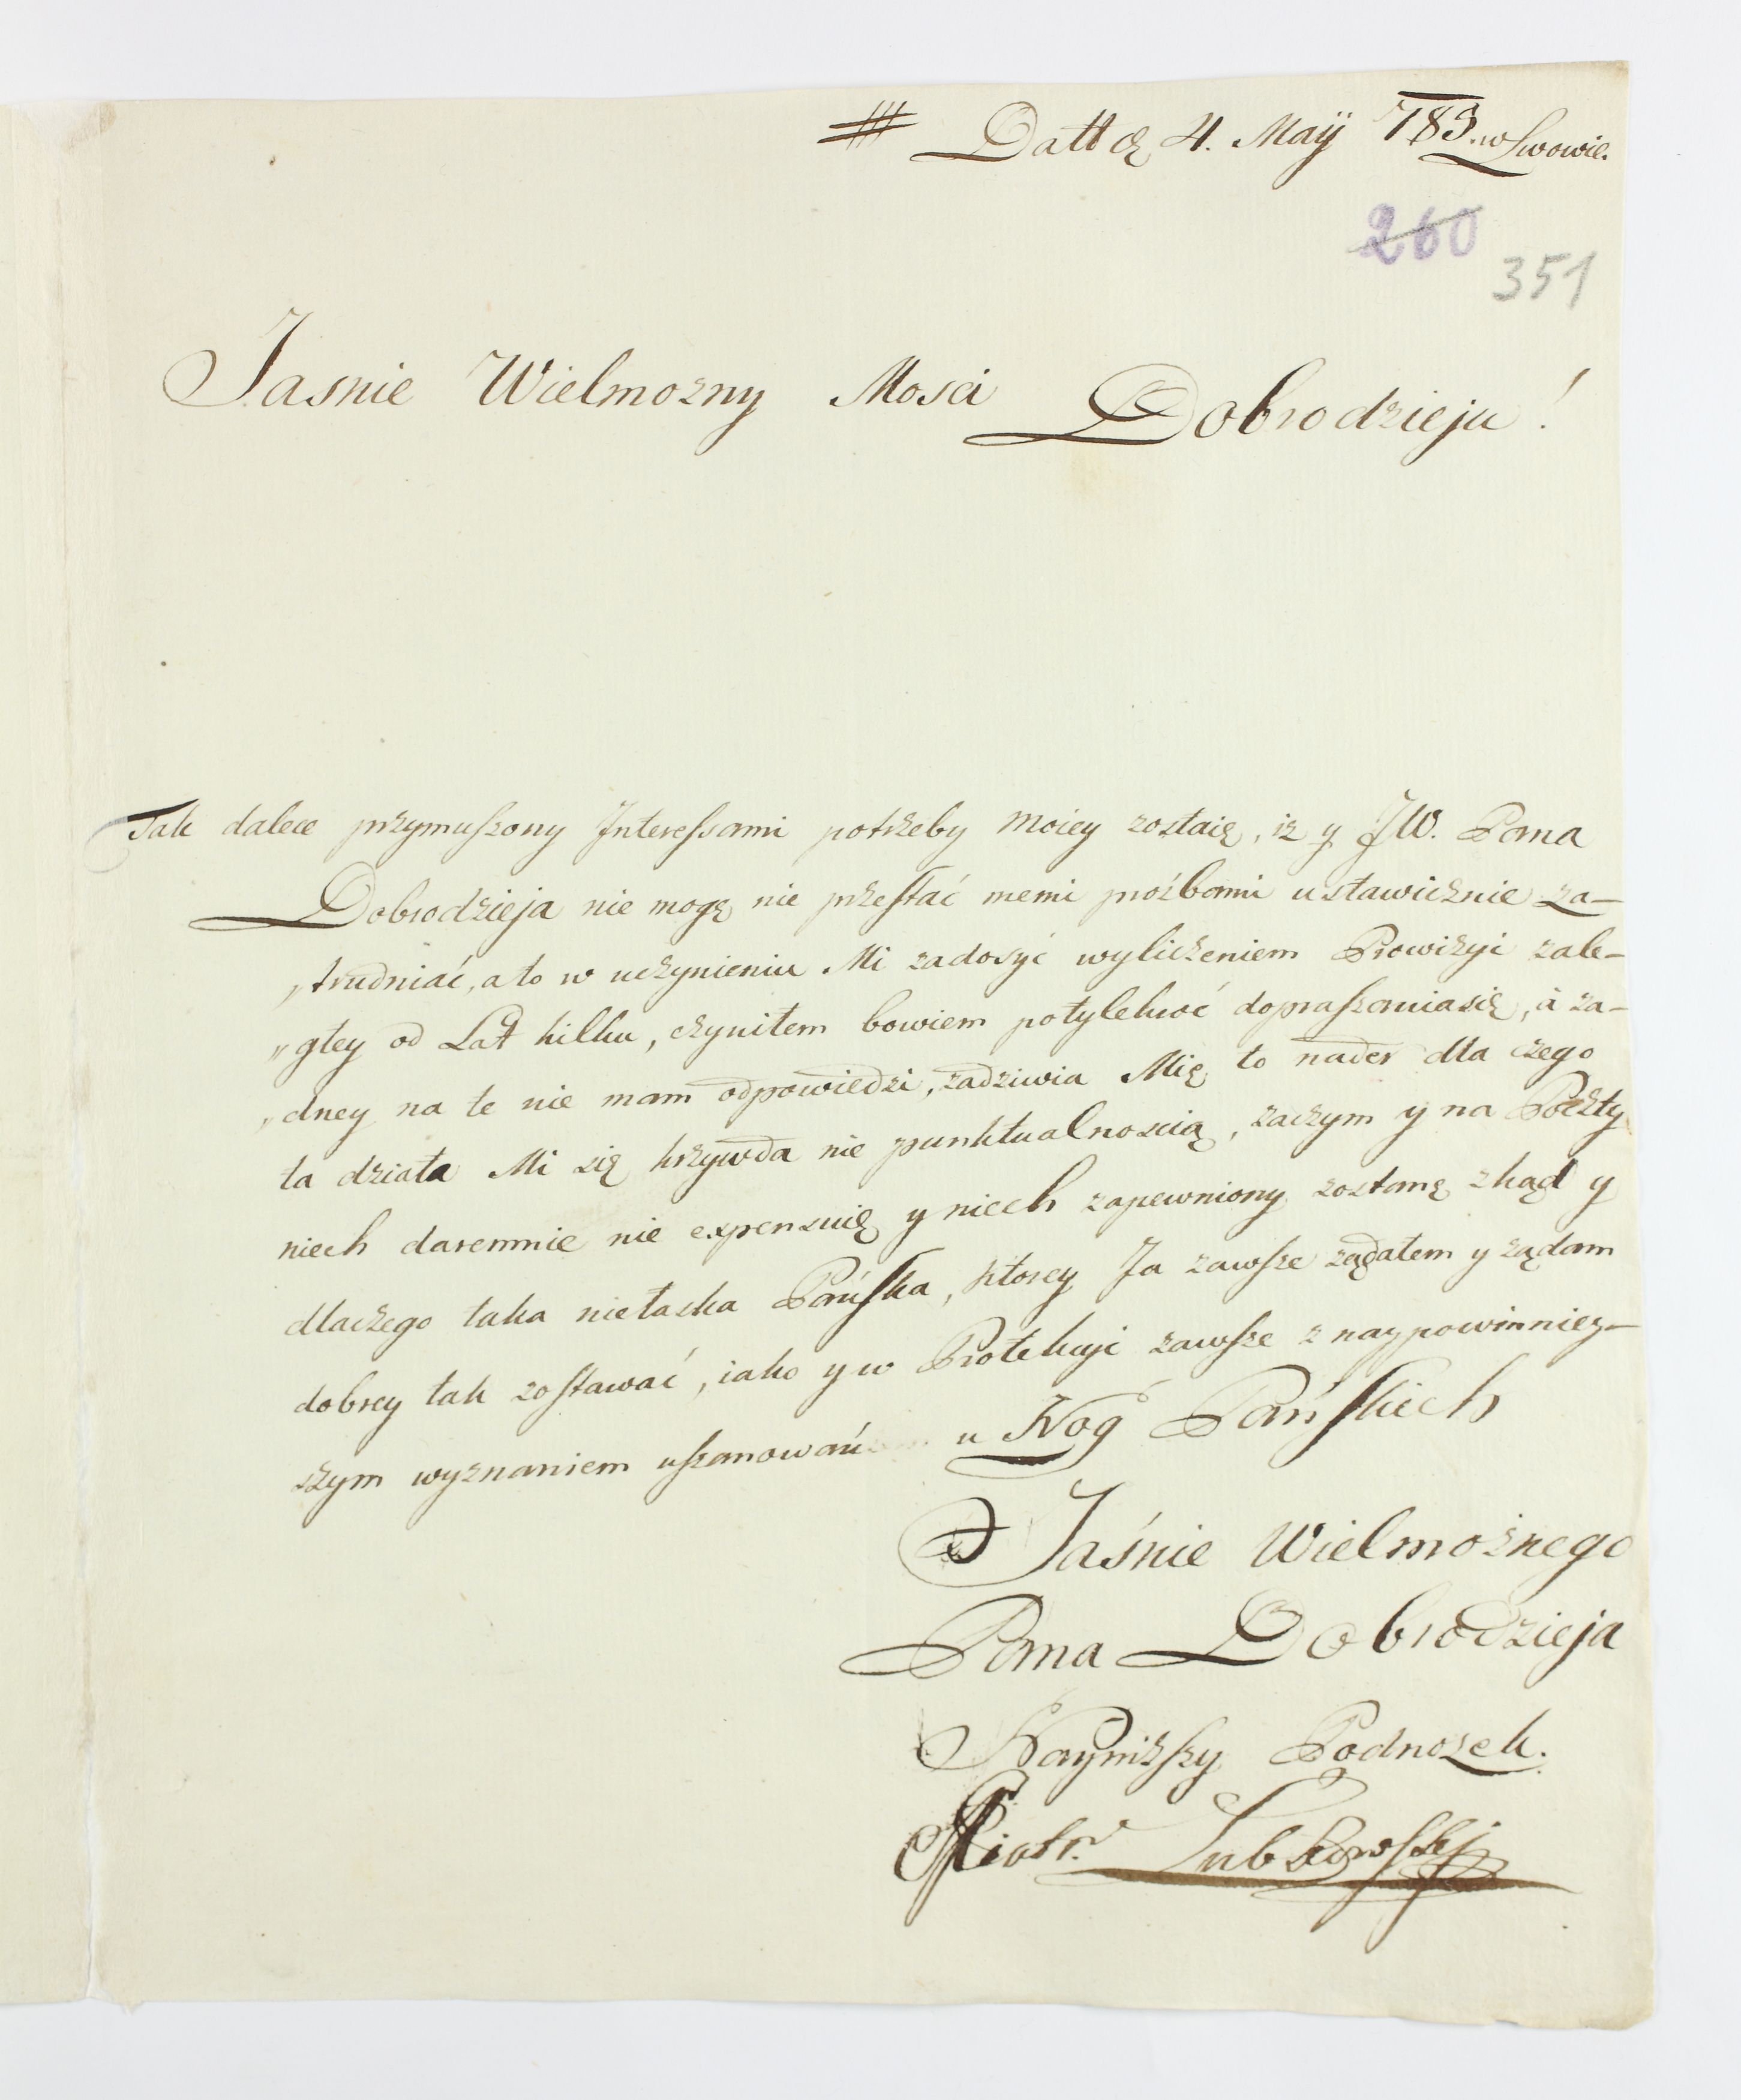 Datt d 4. Maÿ 783. w Lwowie.
260
351
Jasnie Wielmozny Mosci Dobrodzieju!
Tak dalece przymuszony Interessami potrzeby moiey zostaię, iz y JW. Pana
Dobrodzieja nie mogę nie przestać memi proźbami ustawicznie za-
„trudniać, a to w uczynieniu Mi zadosyć wyliczeniem Prowizyi zale-
„głey od Lat kilku, czyniłem bowiem potylekroć dopraszania się, á za-
„dney na te nie mam odpowiedzi, zadziwia Mię to nader dla czego
ta działa Mi się krzywda nie punktualnoscią, zaczym y na Poczty
niech daremnie nie expensuię y niech zapewniony zostanę zkąd y
dlaczego taka niełaska Pańska, ktorey Ja zawsze ządałem y ządam
dobrey tak zostawać, iako y w Protekcyi zawsze z naypowinniey-
szym wyznaniem uszanowań u Nóg Pańskich
Jaśnie Wielmożnego
Pana Dobrodzieja
Nayniższy Podnozek.
Piotr Lubkowski